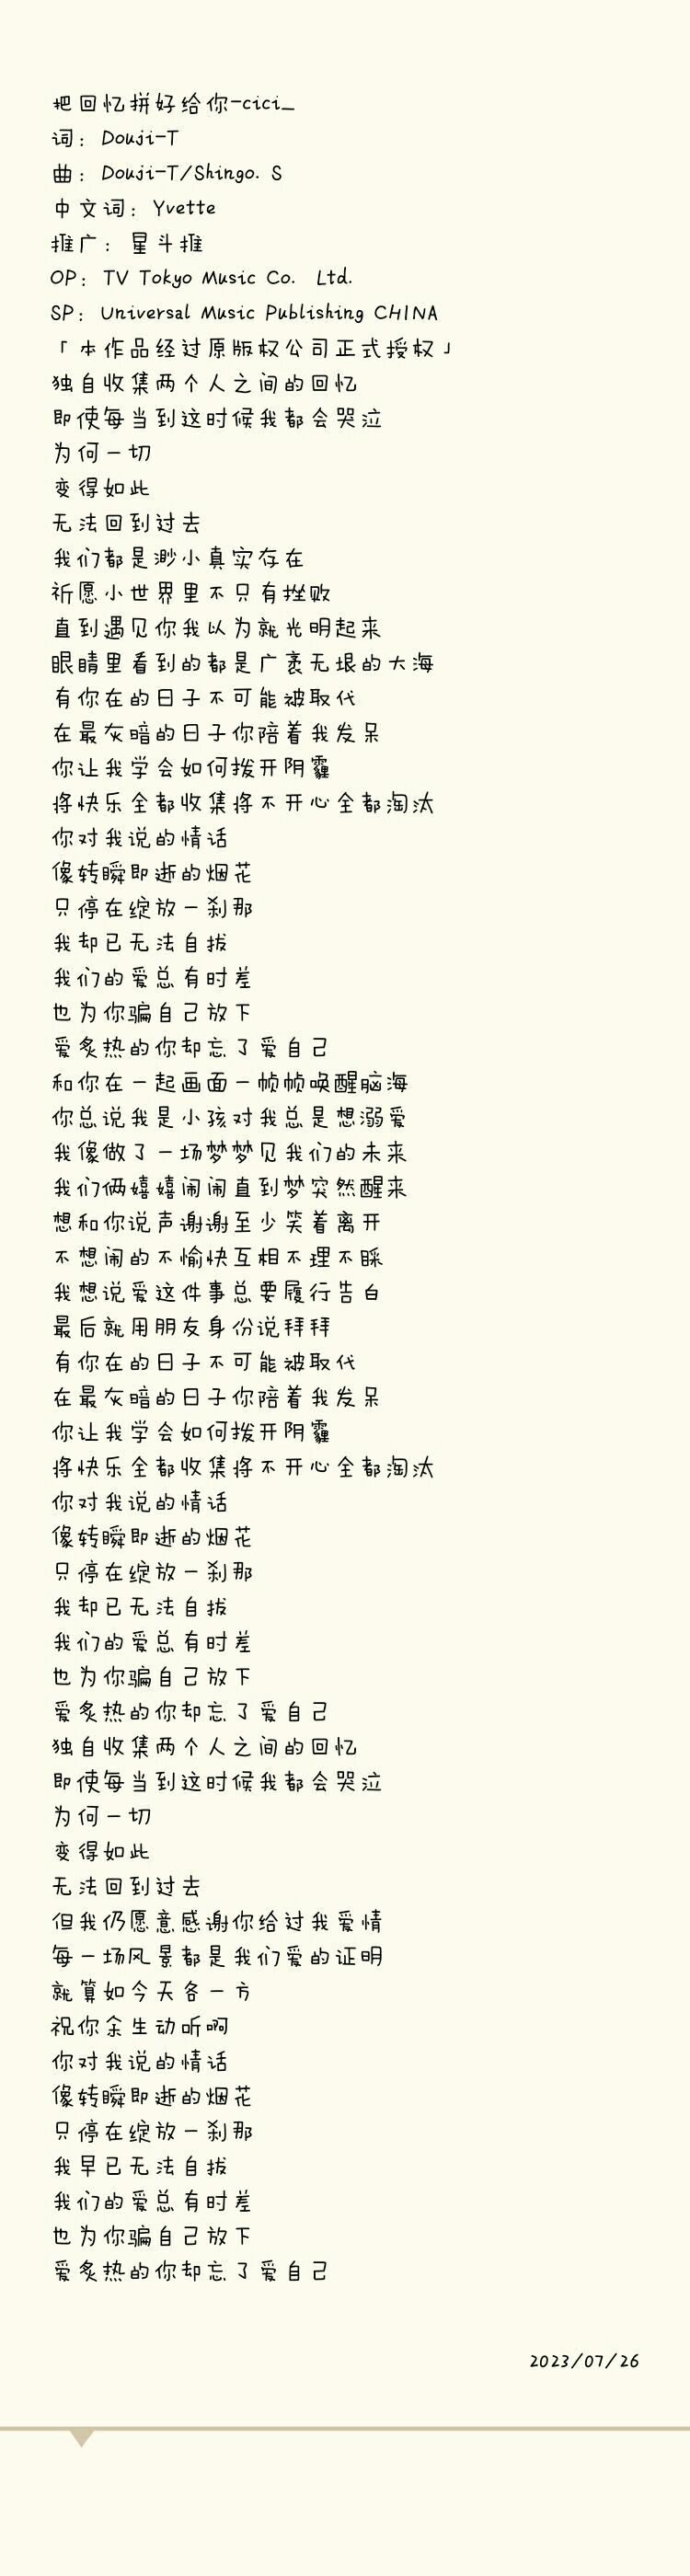 把回忆拼好给你-cici_
词：Douji-T
曲：Douji-T/Shingo. S
中文词：Yvette
推广：星斗推
OP：TV Tokyo Music Co. Ltd.
SP：Universal Music Publishing CHINA
「本作品经过原版权公司正式授权」
独自收集两个人之间的回忆
即使每当到这时候我都会哭泣
为何一切
变得如此
无法回到过去
我们都是渺小真实存在
祈愿小世界里不只有挫败
直到遇见你我以为就光明起来
眼睛里看到的都是广袤无垠的大海
有你在的日子不可能被取代
在最灰暗的日子你陪着我发呆
你让我学会如何拨开阴霾
将快乐全都收集将不开心全都淘汰
你对我说的情话
像转瞬即逝的烟花
只停在绽放一刹那
我却已无法自拔
我们的爱总有时差
也为你骗自己放下
爱炙热的你却忘了爱自己
和你在一起画面一帧帧唤醒脑海
你总说我是小孩对我总是想溺爱
我像做了一场梦梦见我们的未来
我们俩嬉嬉闹闹直到梦突然醒来
想和你说声谢谢至少笑着离开
不想闹的不愉快互相不理不睬
我想说爱这件事总要履行告白
最后就用朋友身份说拜拜
有你在的日子不可能被取代
在最灰暗的日子你陪着我发呆
你让我学会如何拨开阴霾
将快乐全都收集将不开心全都淘汰
你对我说的情话
像转瞬即逝的烟花
只停在绽放一刹那
我却已无法自拔
我们的爱总有时差
也为你骗自己放下
爱炙热的你却忘了爱自己
独自收集两个人之间的回忆
即使每当到这时候我都会哭泣
为何一切
变得如此
无法回到过去
但我仍愿意感谢你给过我爱情
每一场风景都是我们爱的证明
就算如今天各一方
祝你余生动听啊
你对我说的情话
像转瞬即逝的烟花
只停在绽放一刹那
我早已无法自拔
我们的爱总有时差
也为你骗自己放下
爱炙热的你却忘了爱自己
2023/07/26